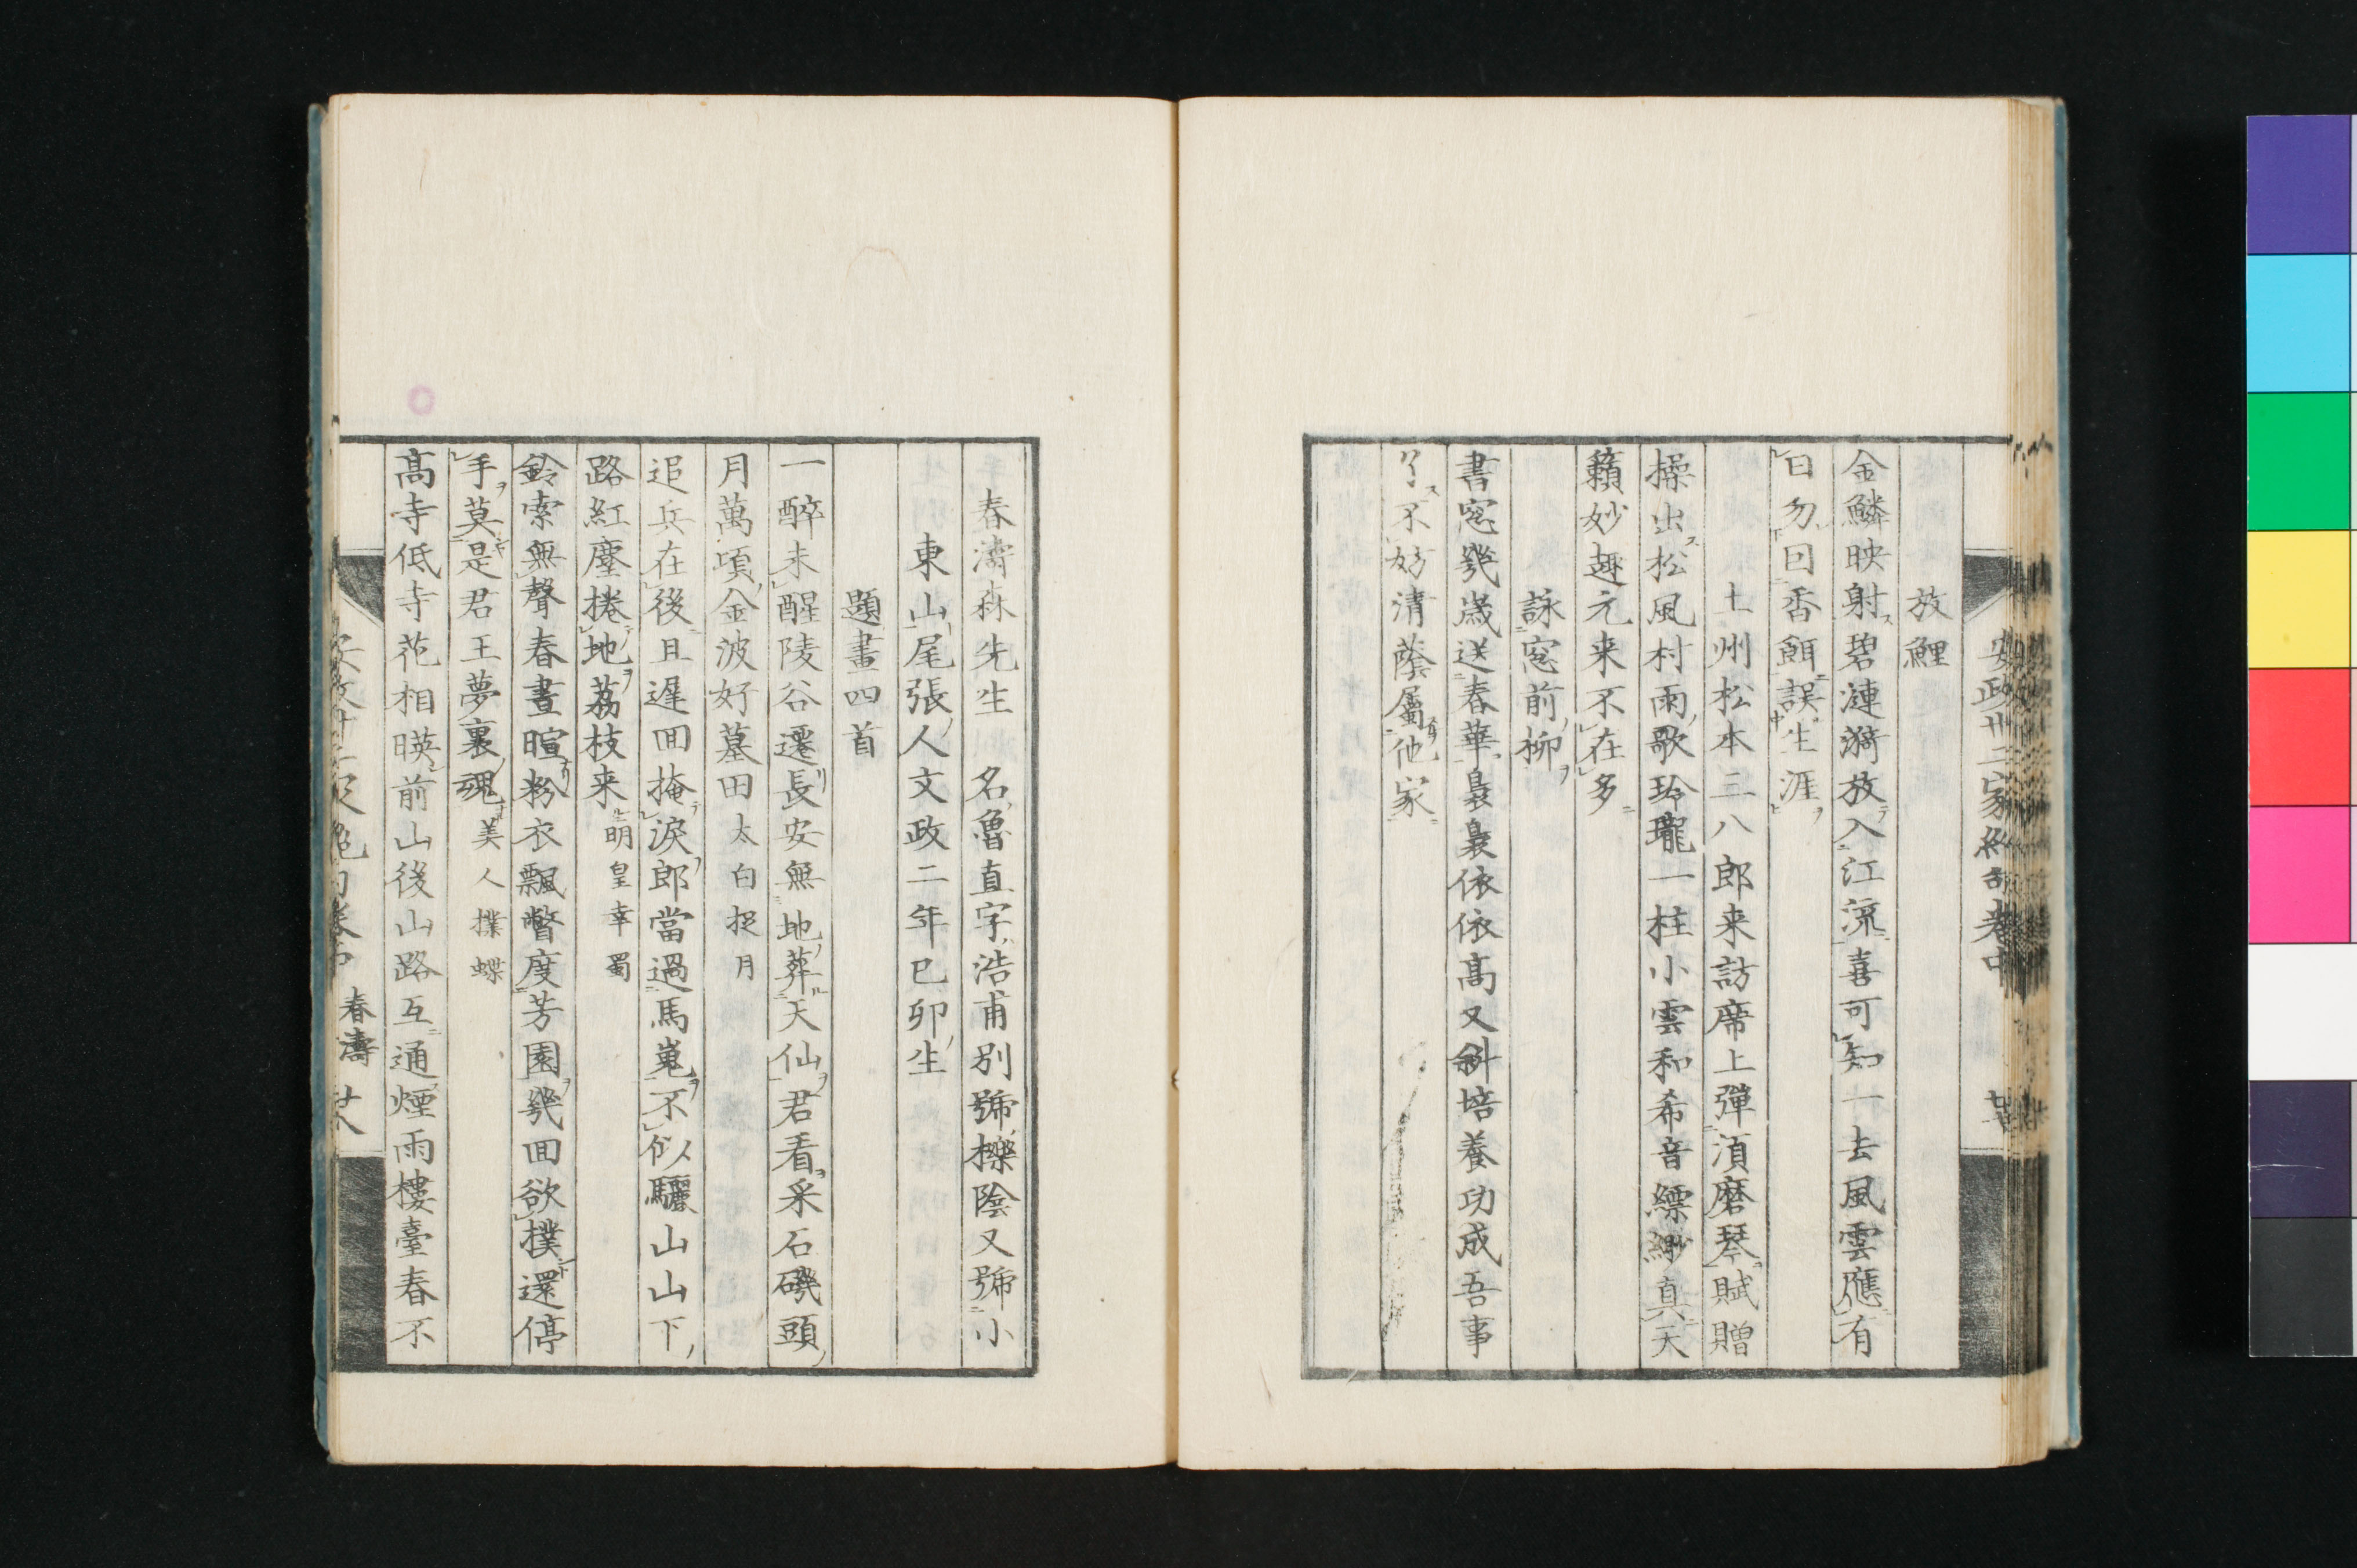 安政卅二家絶句卷中
放鯉
金鱗映射碧漣漪放入江流喜可知一去風雲應有
日勿囙香餌誤生涯
土州松本二八郎来訪席上彈湏磨琴賦贈
操出松風村雨歌玲瓏一柱小雲和希音縹緲真天
籟妙趣元来不在多
詠窓前柳
書窓幾歳送春華裊裊依依高又斜培養功成吾事
了不妨清蔭屬他家
春濤森先生 名魯直字浩甫別號櫟陰又號小
東山尾張人文政二年己卯生
題畫四首
一醉未醒陵谷遷長安無地葬天仙君看采石磯頭
月萬頃金波好墓田 太白捉月
追兵在後且遲回掩淚郎當過馬嵬不似驪山山下
路紅塵捲地茘枝来 明皇幸蜀
鈴索無聲春晝暄粉衣飄瞥度芳園幾回欲撲還停
手莫是君王夢裏魂 美人撲蝶
高寺低寺花相暎前山後山路互通煙雨樓臺春不
春濤 廿八